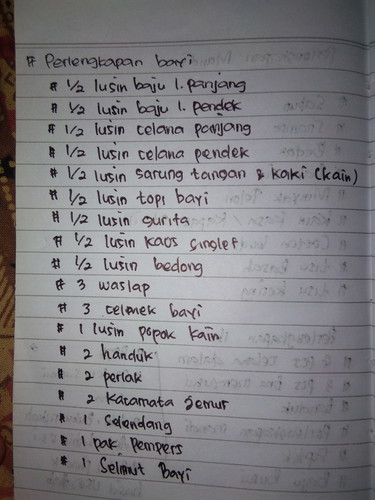 # Perlengkapan bayi
# 1/2 lusin baju l. panjang
# 1/2 lusin baju l. pendek
# 1/2 lusin celana panjang
# 1/2 lusin celana pendek
# 1/2 lusin sarung tangan & kaki (kain)
# 1/2 lusin topi bayi
# 1/2 lusin gurita
# 1/2 lusin kaos singlet
# 1/2 lusin bedong
# 3 waslap
# 3 celmek bayi
# 1 lusin popok kain
# 2 handuk
# 2 perlak
# 2 kacamata jemur
# 1 selendang
# 1 pak pempers
# 1 Selimut Bayi